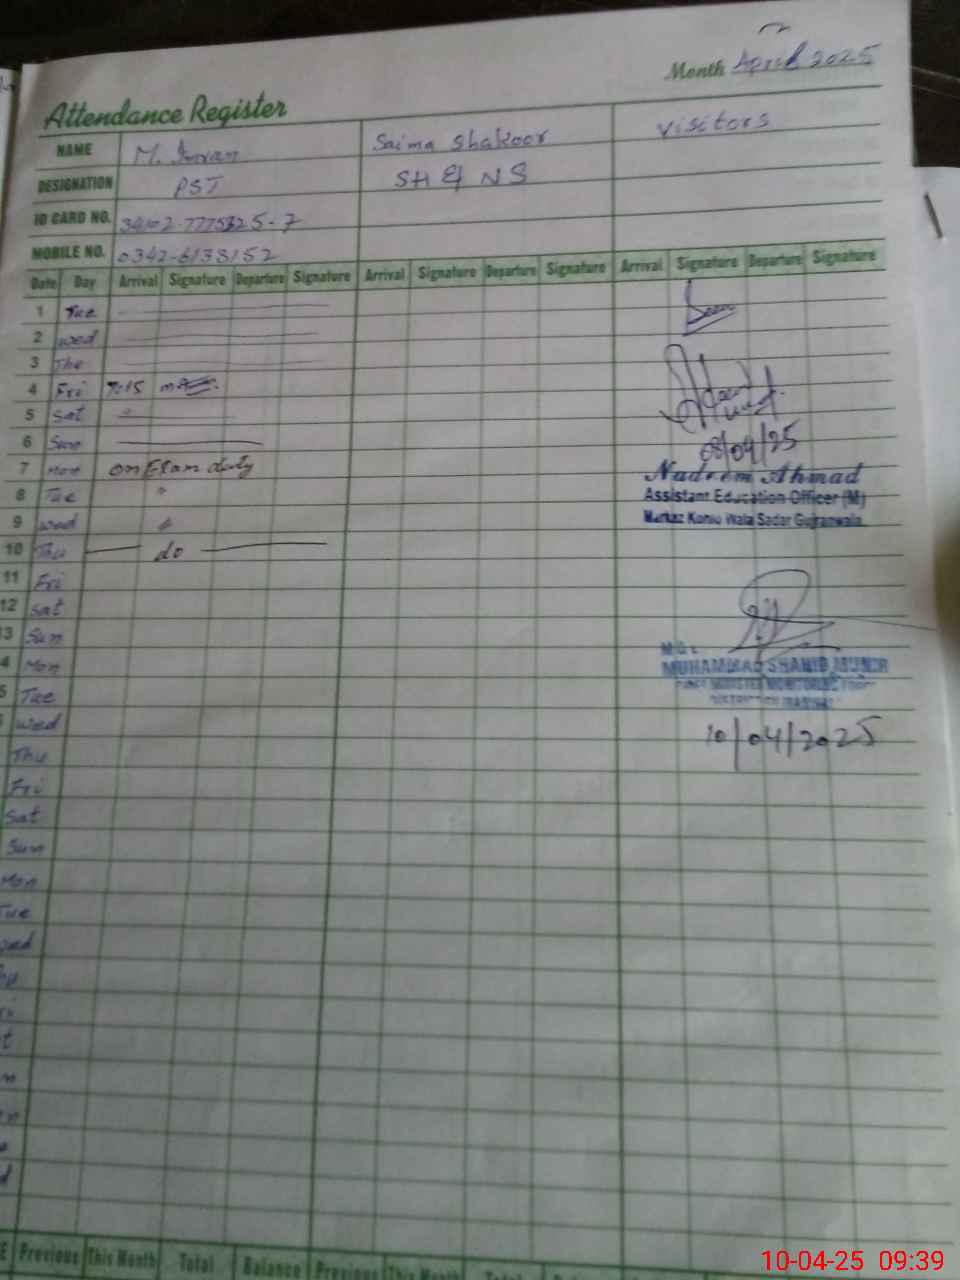 Month April 2025
Attendance Register
NAME M. Imran Saima Shakoor Visitors
DESIGNATION PST SH & NS
ID CARD NO.
MOBILE NO. 0342-6138152
Date Day Arrival Signature Departure Signature Arrival Signature Departure Signature Arrival Signature Departure Signature
1 Tue
2 wed
3 The
4 Fri 7:15
5 Sat "
6 Sun
7 Mon on Exam duty
08/04/25
Nadeem Ahmad
8 Tue "
Assistant Education Officer (M)
9 wed "
Markaz Kohlo Wala Sadar Gujranwala
10 Thu do
11 Fri
12 Sat
3 Sun
4 Mon
MUHAMMAD SHAHID MUNIR
5 Tue
wed
10/04/2025
Thu
Fri
Sat
Sun
Mon
Tue
wed
E Previous This Month Total Balance Previous This Month Total
10-04-25 09:39